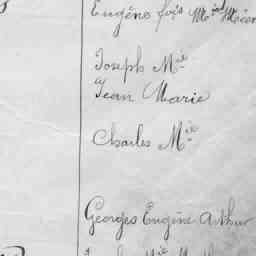 Eugéne fçis Mie
Joseph Mie
Jean Marie
Charles Mie
Georges Eugène Arthur